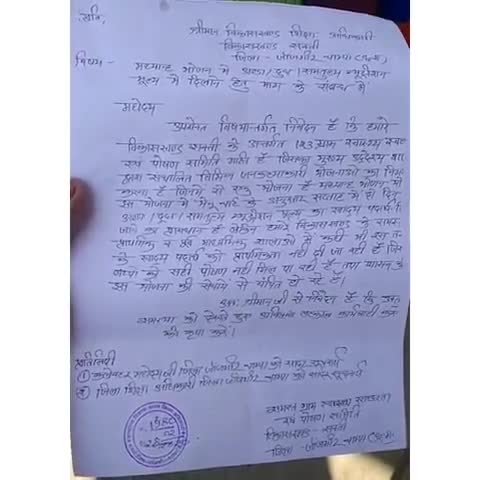 प्रति,
श्रीमान विकासखण्ड शिक्षा अधिकारी
विकासखण्ड सक्ती
जिला - जांजगीर चाम्पा (छ.ग.)
विषय - मध्यान्ह भोजन में अण्डा / दुध / समतुल्य न्यूट्रीशन
मूल्य में दिलाने हेतु मांग के संबंध में
महोदय
उपरोक्त विषयान्तर्गत निवेदन है कि हमारे
विकासखण्ड सक्ती के अन्तर्गत 123 ग्राम स्वास्थ्य स्वच्छता
एवं पोषण समिति गठित है जिसका मुख्य उद्देश्य
द्वारा संचालित विभिन्न जनकल्याणकारी योजनाओं का
करना है जिनमें से एक योजना है मध्यान्ह भोजन
इस योजना में मेनू चार्ट के अनुसार सप्ताह में दो दिन
अण्डा / दूध / समतुल्य न्यूट्रीशन मूल्य का खाद्य पदार्थ
जाने का प्रावधान है लेकिन हमारे विकासखण्ड के समस्त
प्राथमिक व पूर्व माध्यमिक शालाओं में कहीं भी इस तरह
के खाद्य पदार्थ को प्राथमिकता नहीं दी जा रही है जिससे
बच्चों को सही पोषण नहीं मिल पा रही है, तथा शासन के
इस योजना की सेवाओं से वंचित हो रहे है।
अतः श्रीमान जी से निवेदन है कि उक्त
समस्या को देखते हुए उचित कार्यवाही करने
की कृपा करें।
प्रतिलिपी
① कलेक्टर महोदय जी जिला जांजगीर चाम्पा को सादर सूचनार्थ
② जिला शिक्षा अधिकारी जिला जांजगीर चाम्पा को सादर सूचनार्थ
समस्त ग्राम स्वास्थ्य स्वच्छता
एवं पोषण समिति
विकासखण्ड - सक्ती
जिला - जांजगीर चाम्पा (छ.ग.)